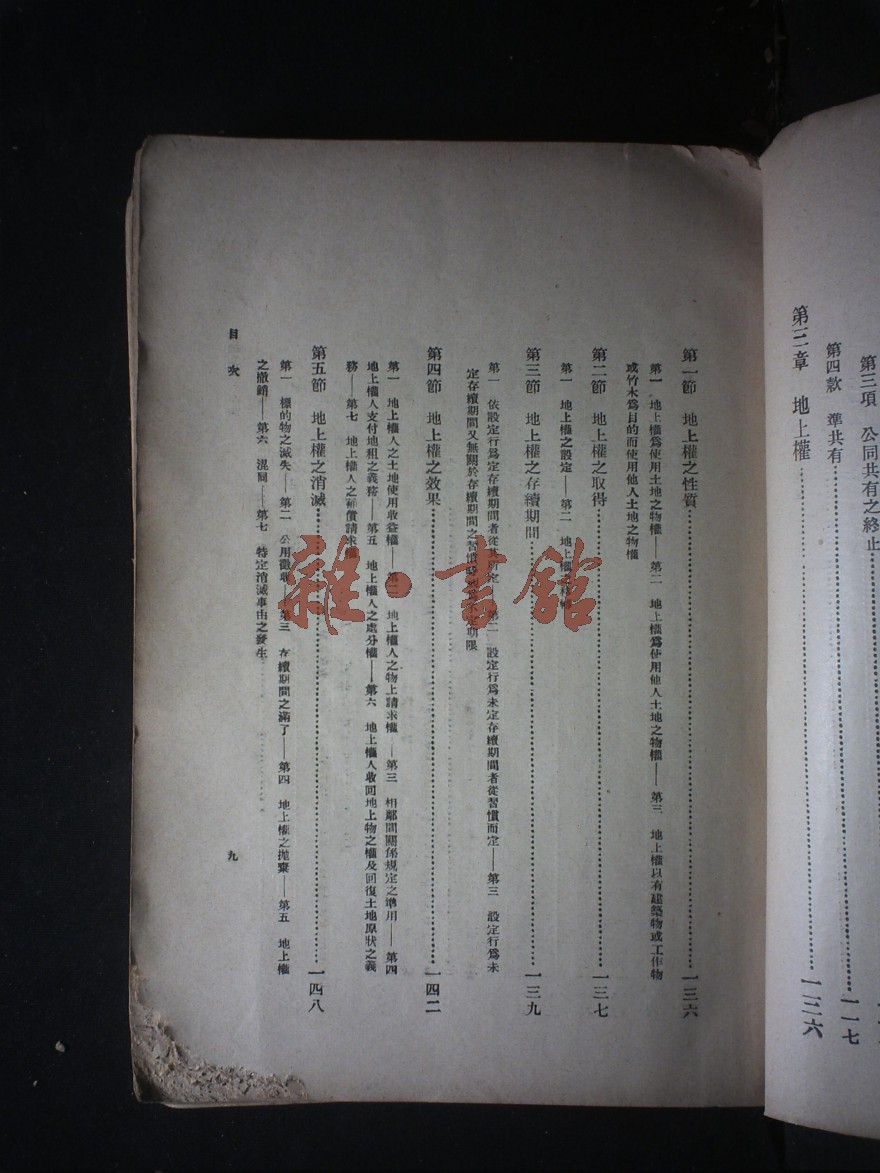 第三項　公同共有之終止
第四款　準共有⋯⋯一一七
第三章　地上權⋯⋯一三六
第一節　地上權之性質⋯⋯一三六
第一　地上權爲使用土地之物權——第二　地上權爲使用他人土地之物權——第三　地上權以有建築物或工作物
或竹木爲目的而使用他人土地之物權
第二節　地上權之取得⋯⋯一三七
第一　地上權之設定——第二　地上權之
第三節　地上權之存續期間⋯⋯一三九
第一　依設定行爲定存續期間者從其所定　第二　設定行爲未定存續期間者從習慣而定——第三　設定行爲未
定存續期間又無關於存續期間之習慣時　定期限
第四節　地上權之效果⋯⋯一四二
第一　地上權人之土地使用收益權——第二　地上權人之物上請求權——第三　相鄰間關係規定之準用——第四
地上權人支付地租之義務——第五　地上權人之處分權——第六　地上權人收回地上物之權及回復土地原狀之義
務——第七　地上權人之補償請求權
第五節　地上權之消滅⋯⋯一四八
第一　標的物之滅失——第二　公用徵收——第三　存續期間之滿了——第四　地上權之拋棄——第五　地上權
之撤銷——第六　混同——第七　特定消滅事由之發生
目次
九
雜·書館